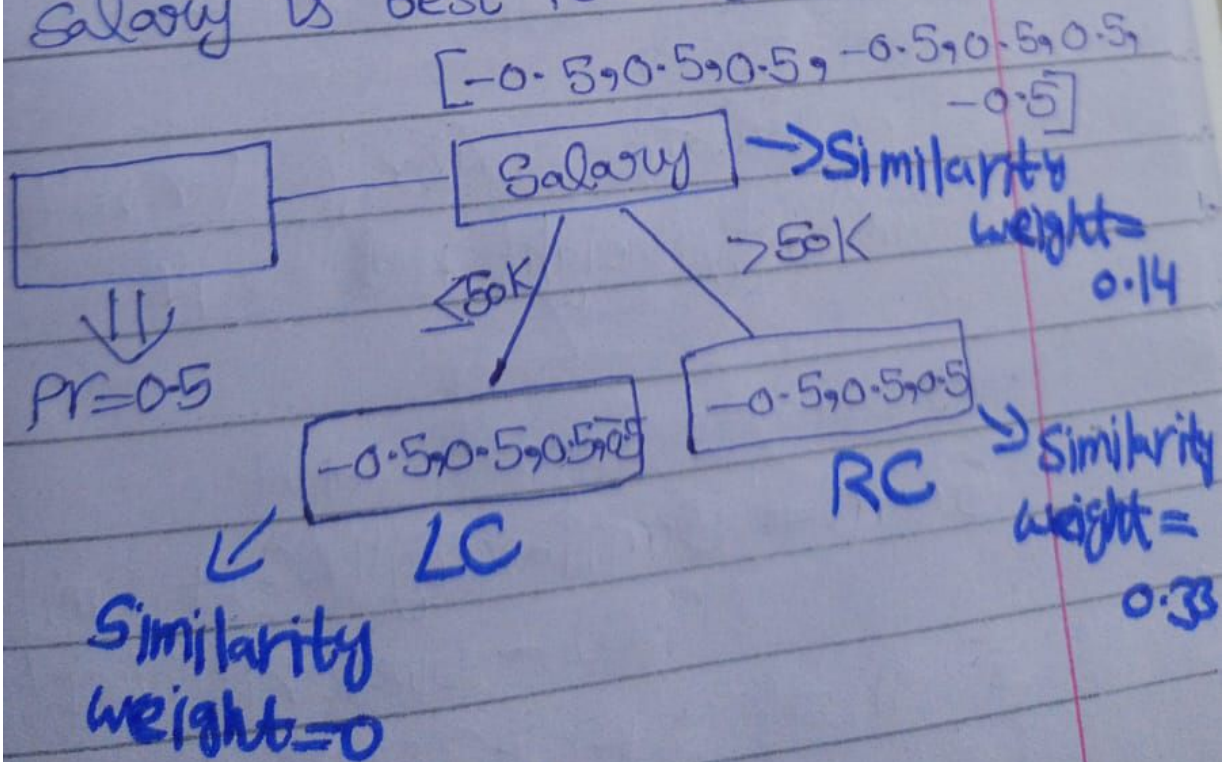 Salary is best
[-0.5,0.5,0.5,-0.5,0.5,0.5,
-0.5]
Salary
->Similarity
weight=
0.14
≤50K
>50K
Pr=0.5
-0.5,0.5,0.5,-0.5
-0.5,0.5,0.5
LC
RC
Similarity
weight=
0.33
Similarity
weight=0